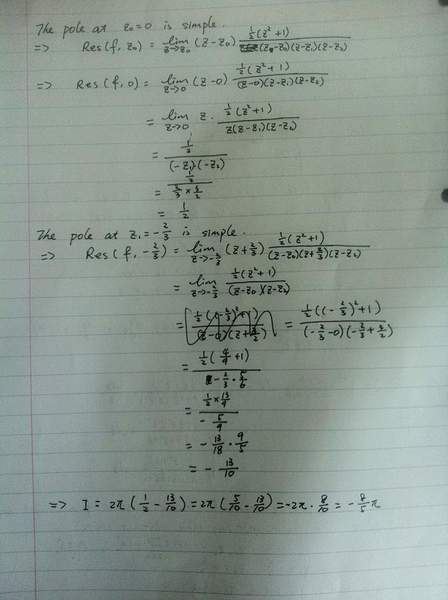 The pole at z₀=0 is simple.
=> Res(f, z₀) = lim_{z→z₀} (z-z₀) \frac{\frac{1}{2}(z²+1)}{(z-z₀)(z-z₁)(z-z₂)}
=> Res(f, 0) = lim_{z→0} (z-0) \frac{\frac{1}{2}(z²+1)}{(z-0)(z-z₁)(z-z₂)}
= lim_{z→0} z · \frac{\frac{1}{2}(z²+1)}{z(z-z₁)(z-z₂)}
= \frac{\frac{1}{2}}{(-z₁)(-z₂)}
= \frac{\frac{1}{2}}{\frac{2}{3} × \frac{3}{2}}
= \frac{1}{2}
The pole at z₁=-\frac{2}{3} is simple.
=> Res(f, -\frac{2}{3}) = lim_{z→-\frac{2}{3}} (z+\frac{2}{3}) \frac{\frac{1}{2}(z²+1)}{(z-z₀)(z+\frac{2}{3})(z-z₂)}
= lim_{z→-\frac{2}{3}} \frac{\frac{1}{2}(z²+1)}{(z-z₀)(z-z₂)}
= \frac{\frac{1}{2}((-\frac{2}{3})²+1)}{(-\frac{2}{3}-0)(-\frac{2}{3}+\frac{3}{2})}
= \frac{\frac{1}{2}(\frac{4}{9}+1)}{-\frac{2}{3}·\frac{5}{6}}
= \frac{\frac{1}{2}×\frac{13}{9}}{-\frac{5}{9}}
= -\frac{13}{18}·\frac{9}{5}
= -\frac{13}{10}
=> I = 2π(\frac{1}{2}-\frac{13}{10}) = 2π(\frac{5}{10}-\frac{13}{10}) = -2π·\frac{8}{10} = -\frac{8}{5}π